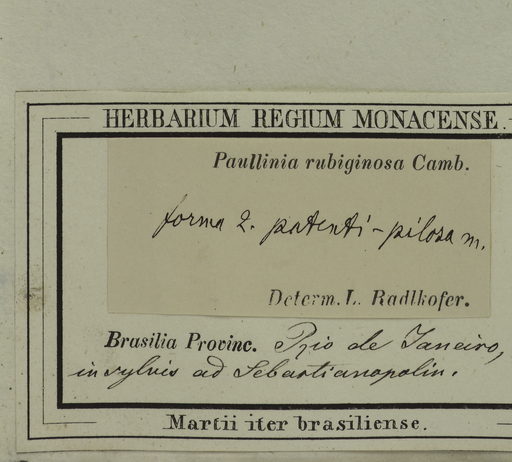 HERBARIUM REGIUM MONACENSE.
Paullinia rubiginosa Camb.
forma 2. patenti-pilosa m.
Determ. L. Radlkofer.
Brasilia Provinc. Rio de Janeiro,
in sylvis ad Sebastianopolin.
Martii iter brasiliense.